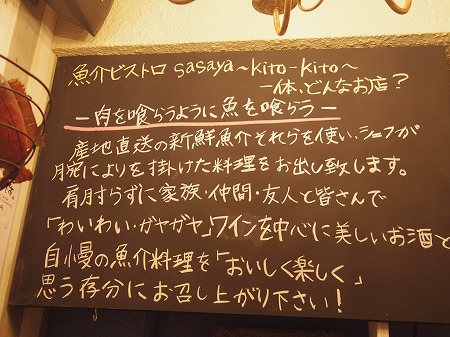 魚介ビストロ sasaya~kito-kito~
一体、どんなお店?
ー肉を喰らうように魚を喰らうー
産地直送の新鮮魚介それらを使い、シェフが
腕によりを掛けた料理をお出し致します。
肩肘張らずに家族・仲間・友人と皆さんで
「わいわい・ガヤガヤ」ワインを中心に美しいお酒と
自慢の魚介料理を「おいしく楽しく」
思う存分にお召し上がり下さい!